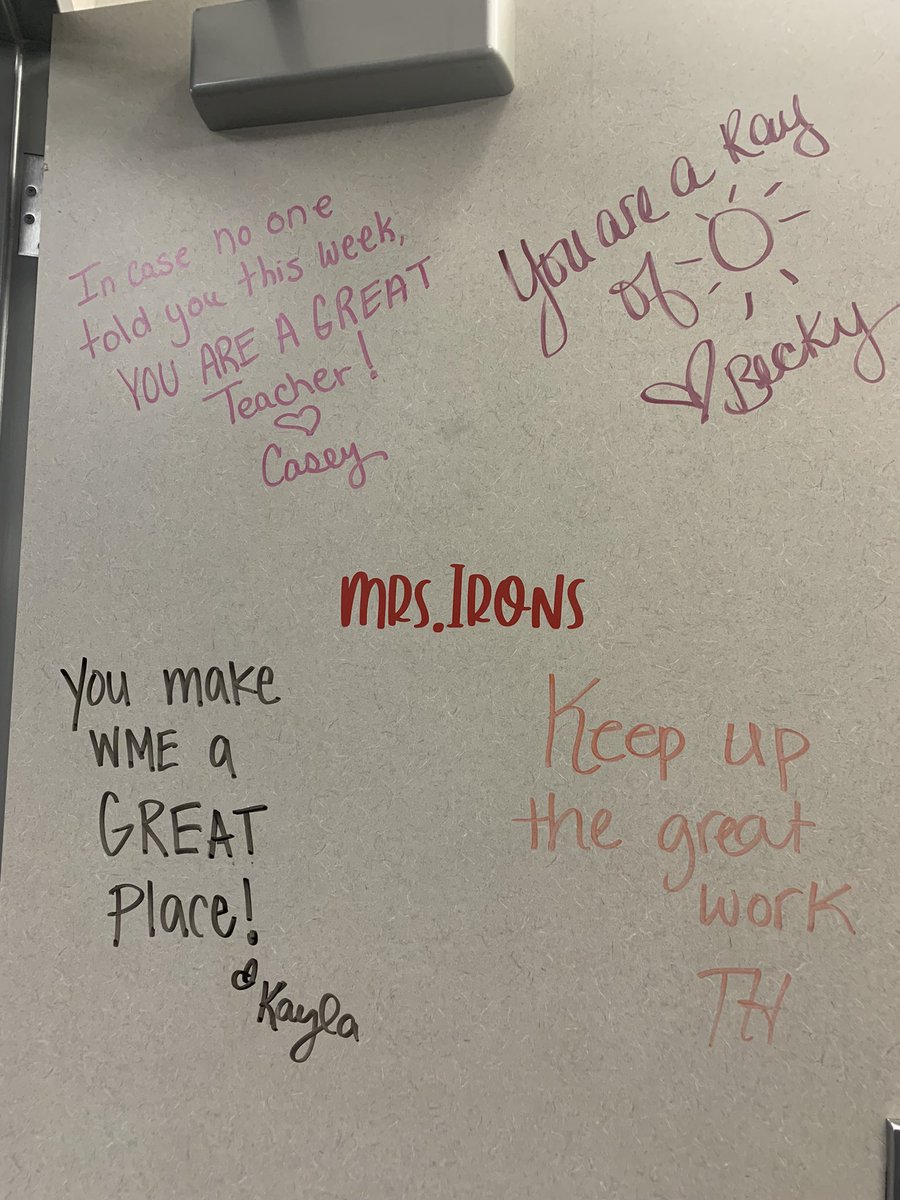 In case no one
told you this week,
YOU ARE A GREAT
Teacher!
Casey
You are a Ray
of
Becky
MRS. IRONS
You make
WME a
GREAT
Place!
Kayla
Keep up
the great
work
TH